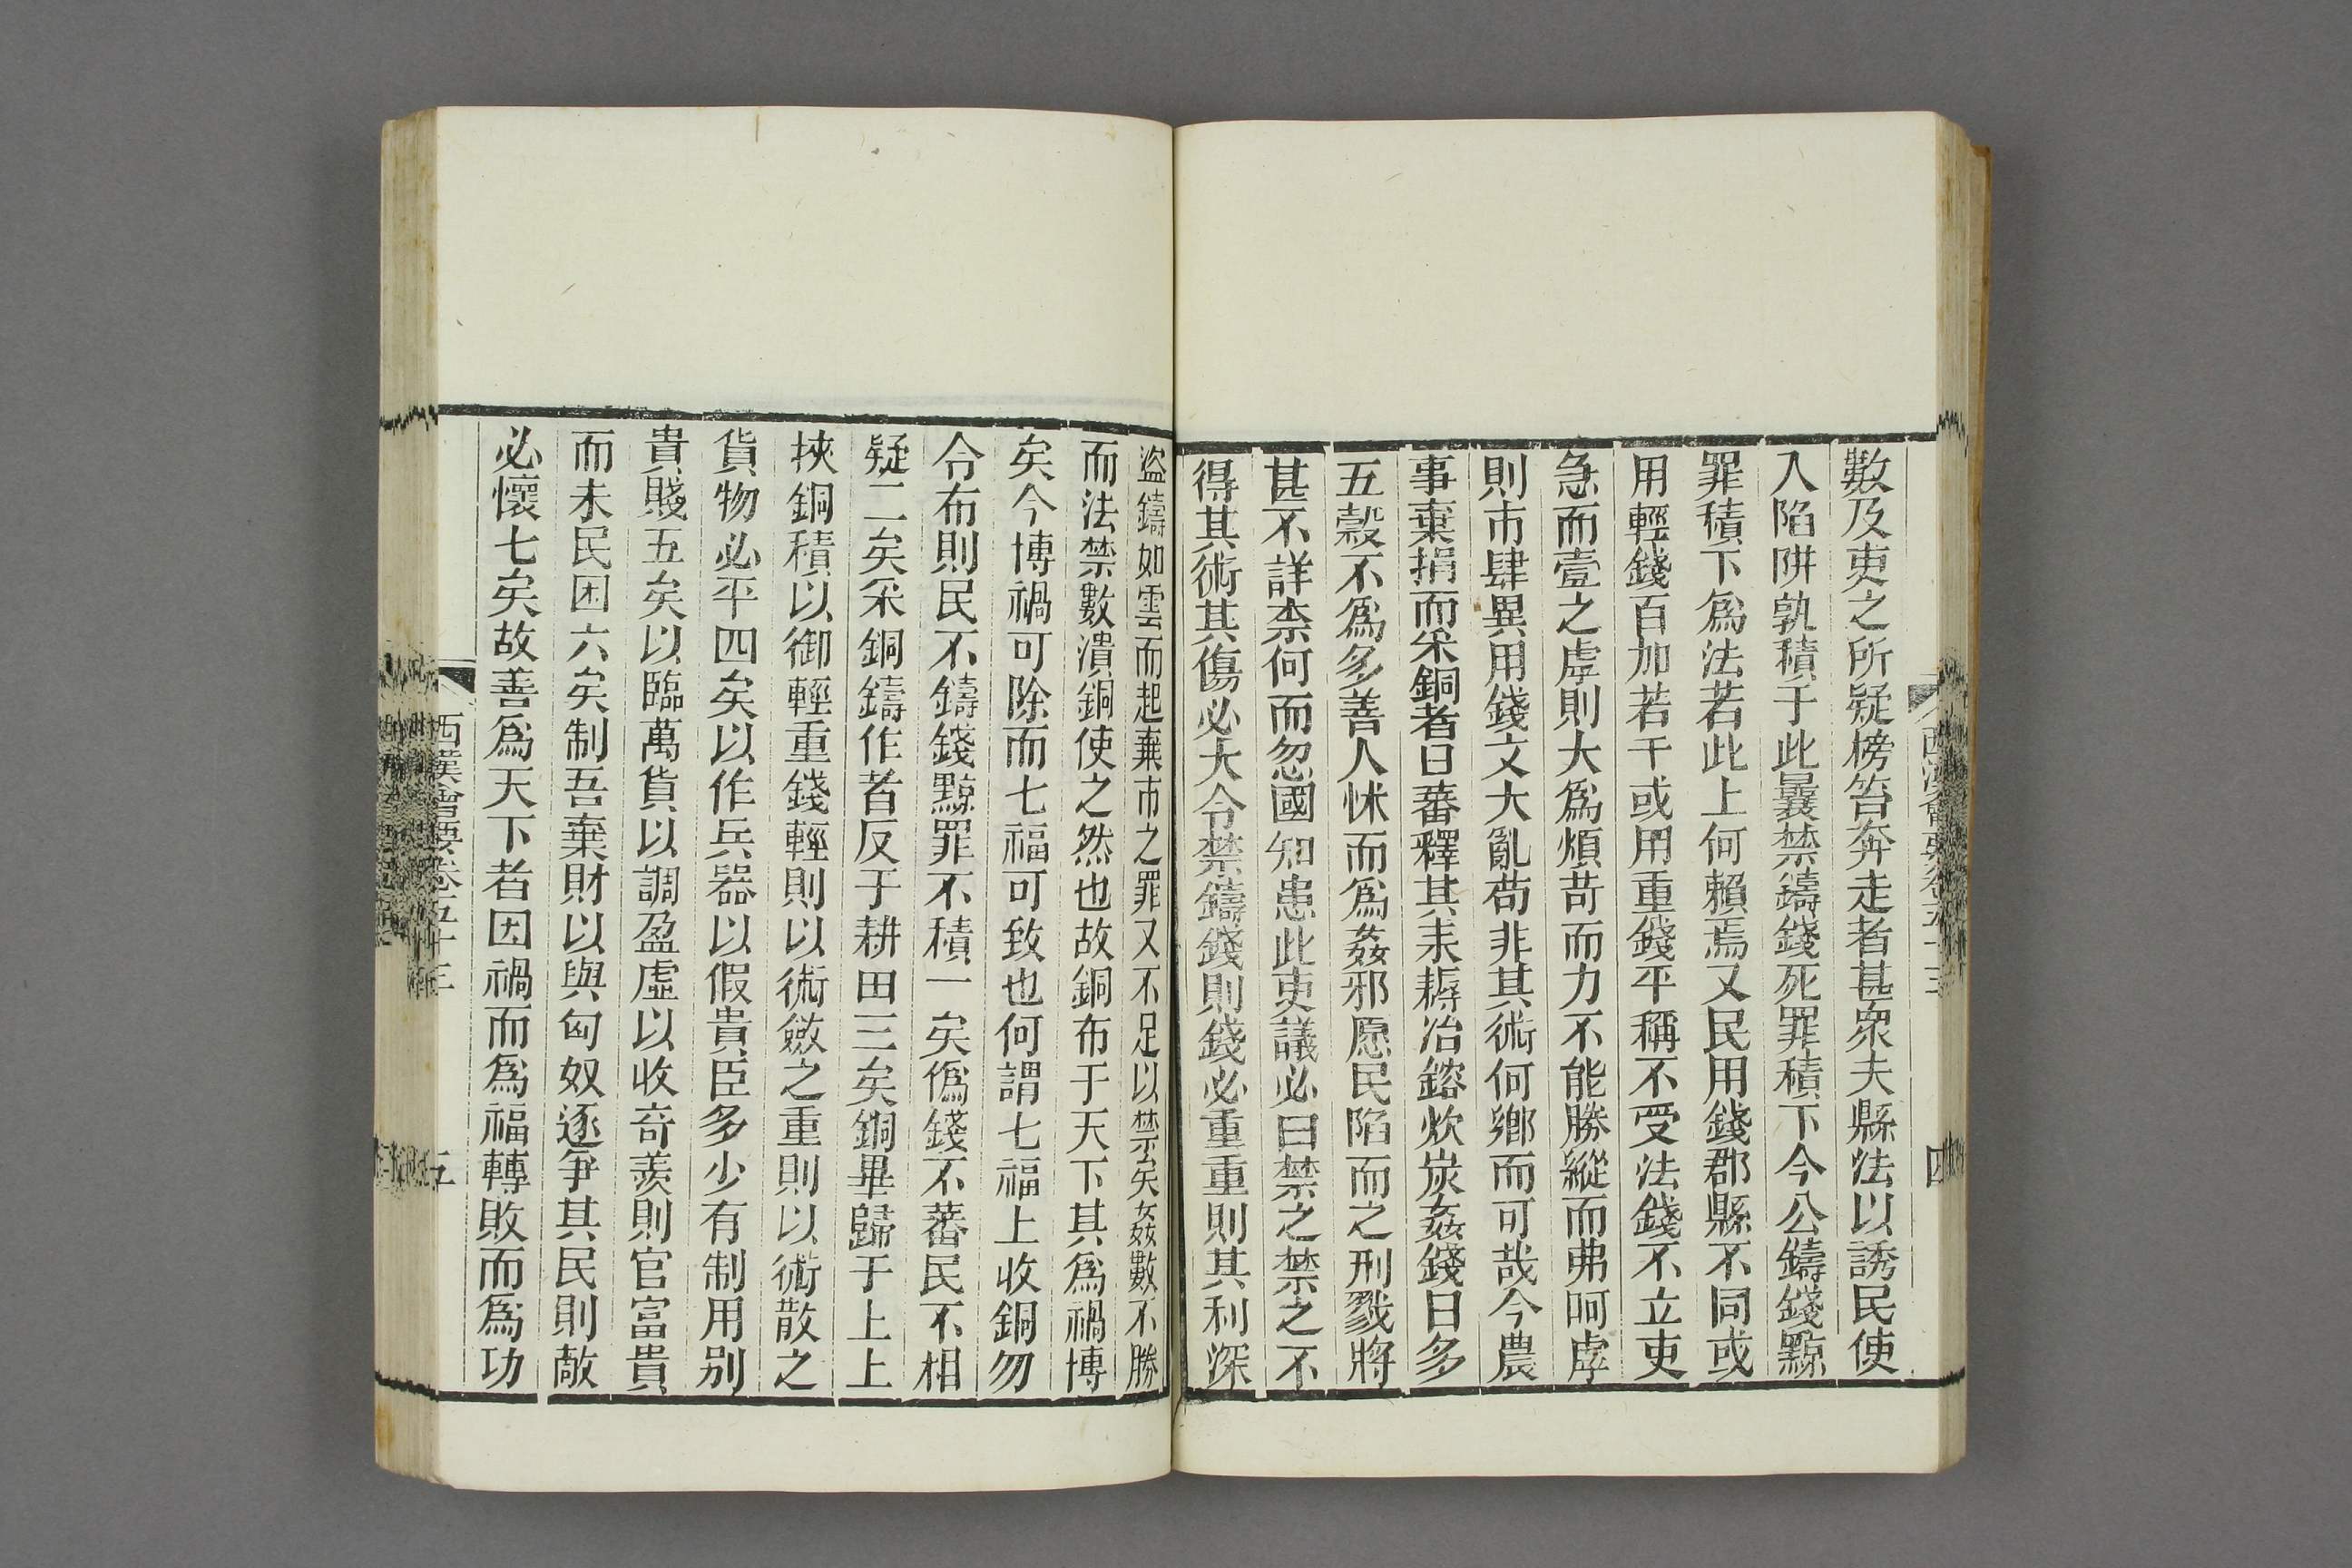 數及吏之所疑榜笞奔走者甚衆夫縣法以誘民使
入陷阱孰積于此曩禁鑄錢死罪積下今公鑄錢黥
罪積下爲法若此上何賴焉又民用錢郡縣不同或
用輕錢百加若干或用重錢平稱不受法錢不立吏
急而壹之虖則大爲煩苛而力不能勝縱而弗呵虖
則市肆異用錢文大亂苟非其術何鄉而可哉今農
事棄捐而采銅者日蕃釋其耒耨冶鎔炊炭姦錢日多
五穀不爲多善人怵而爲姦邪愿民陷而之刑戮將
甚不詳柰何而忽國知患此吏議必曰禁之禁之不
得其術其傷必大令禁鑄錢則錢必重重則其利深
盜鑄如雲而起棄市之罪又不足以禁矣姦數不勝
而法禁數潰銅使之然也故銅布于天下其爲禍博
矣今博禍可除而七福可致也何謂七福上收銅勿
令布則民不鑄錢黥罪不積一矣僞錢不蕃民不相
疑二矣采銅鑄作者反于耕田三矣銅畢歸于上上
挾銅積以御輕重錢輕則以術斂之重則以術散之
貨物必平四矣以作兵器以假貴臣多少有制用別
貴賤五矣以臨萬貨以調盈虛以收奇羨則官富貴
而未民困六矣制吾棄財以與匈奴逐爭其民則敵
必懷七矣故善爲天下者因禍而爲福轉敗而爲功
西漢會要卷五十三
五